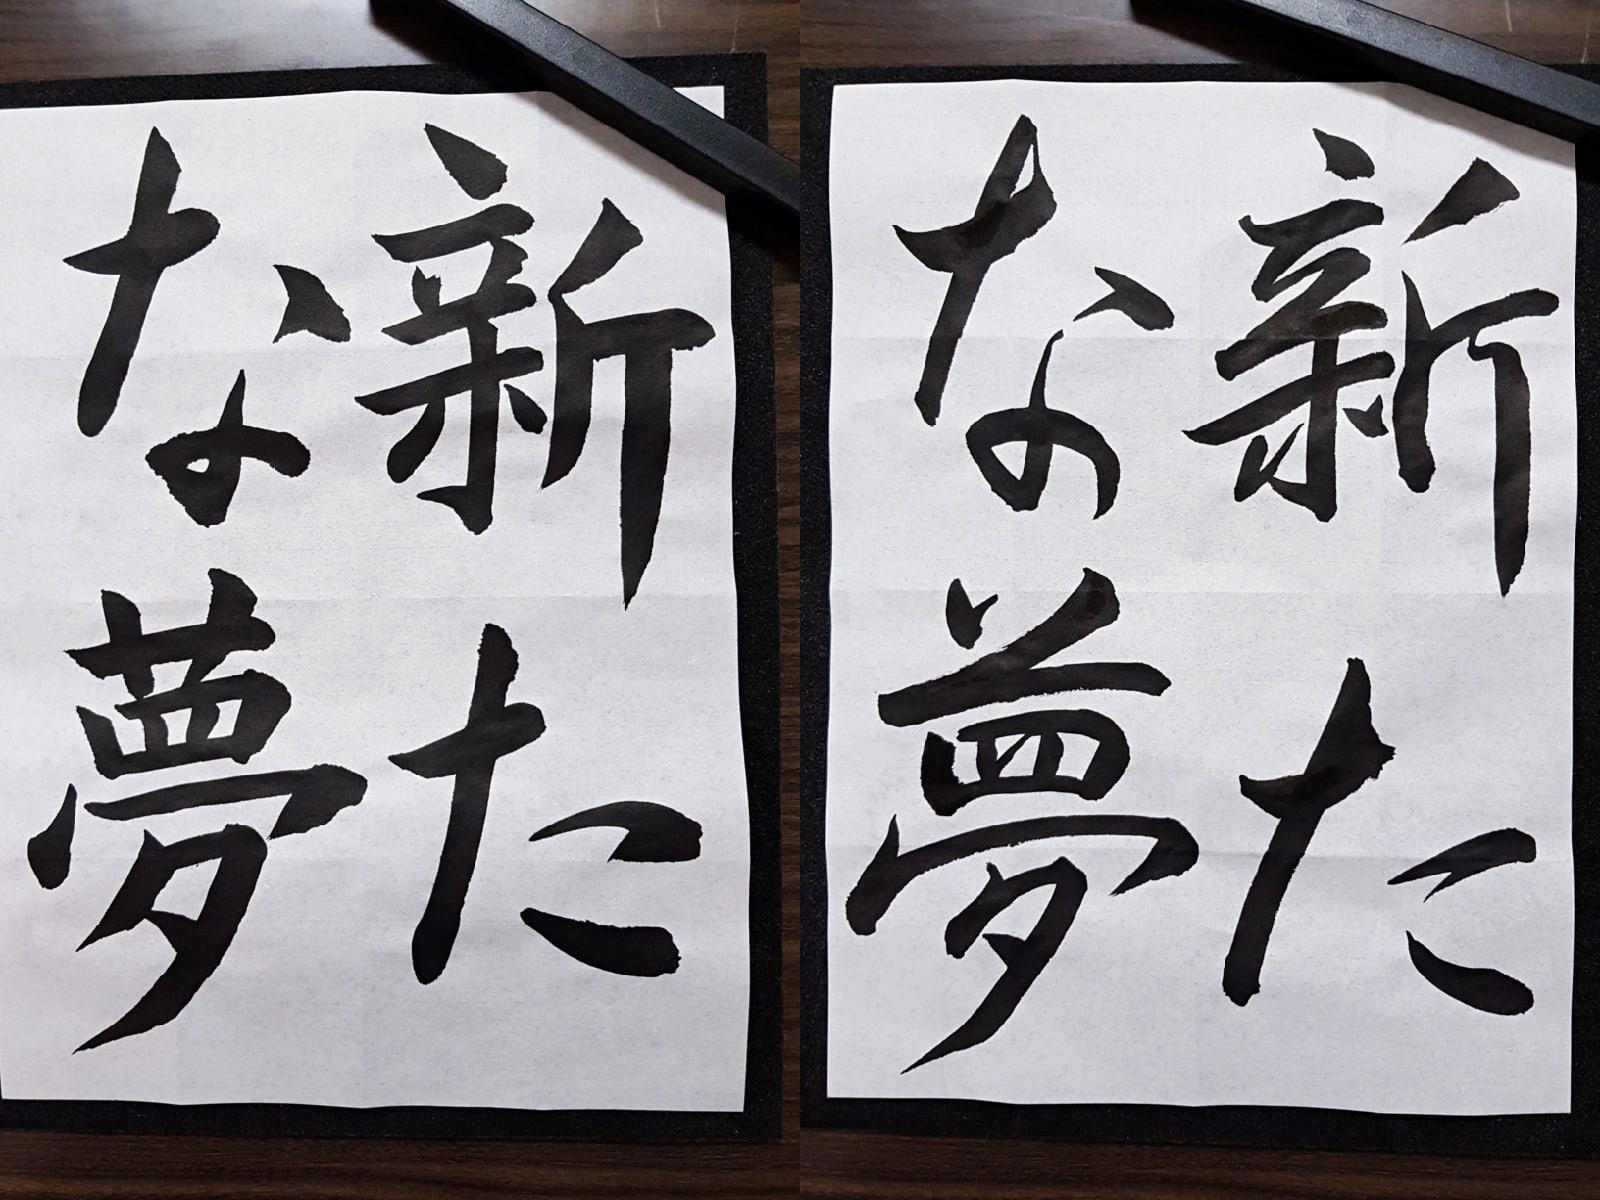 新た
な夢
新た
な夢